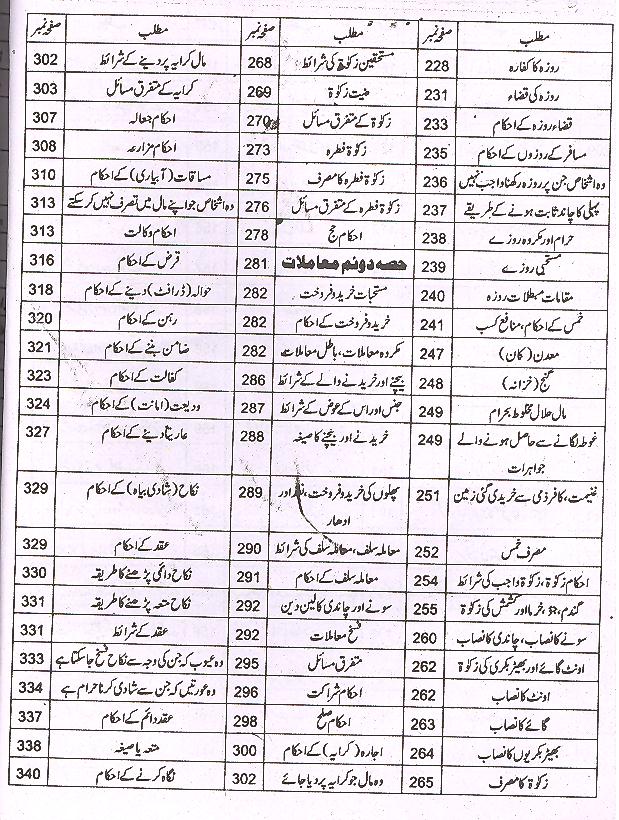 مطلب صفحہ نمبر مطلب صفحہ نمبر مطلب صفحہ نمبر
روزہ کا کفارہ 228 مستحقین زکوٰۃ کی شرائط 268 مال کرایہ پر دینے کے شرائط 302
روزہ کی قضاء 231 نیت زکوٰۃ 269 کرایہ کے متفرق مسائل 303
قضاء روزہ کے احکام 233 زکوٰۃ کے متفرق مسائل 270 احکام جعالہ 307
مسافر کے روزوں کے احکام 235 زکوٰۃ فطرہ 273 احکام مزارعہ 308
وہ اشخاص جن پر روزہ رکھنا واجب نہیں 236 زکوٰۃ فطرہ کا مصرف 275 مساقات (آبیاری) کے احکام 310
پہلی کا چاند ثابت ہونے کے طریقے 237 زکوٰۃ فطرہ کے متفرق مسائل 276 وہ اشخاص جو اپنے مال میں تصرف نہیں کر سکتے 313
حرام اور مکروہ روزے 238 احکام حج 278 احکام وکالت 313
مستحبی روزے 239 حصہ دوئم معاملات 281 قرض کے احکام 316
مقامات مبطلات روزہ 240 مستحبات خرید و فروخت 282 حوالہ (ڈرافٹ) دینے کے احکام 318
خمس کے احکام، منافع کسب 241 خرید و فروخت کے احکام 282 رہن کے احکام 320
معدن (کان) 247 مکروہ معاملات، باطل معاملات 282 ضامن بننے کے احکام 321
گنج (خزانہ) 248 بیچنے اور خریدنے والے کے شرائط 286 کفالت کے احکام 323
مال حلال مخلوط بحرام 249 جنس اور اس کے عوض کے شرائط 287 ودیعت (امانت) کے احکام 324
غوطہ لگانے سے حاصل ہونے والے 249 خریدنے اور بیچنے کا صیغہ 288 عاریتاً دینے کے احکام 327
جواہرات
غنیمت، کافر ذمی سے خریدی گئی زمین 251 پھلوں کی خرید و فروخت، نقد اور 289 نکاح (شادی بیاہ) کے احکام 329
ادھار
مصرف خمس 252 معاملہ سلف، معاملہ سلف کی شرائط 290 عقد کے احکام 329
احکام زکوٰۃ، زکوٰۃ واجب کی شرائط 254 معاملہ سلف کے احکام 291 نکاح دائمی پڑھنے کا طریقہ 330
گندم، جو، خرما اور کشمش کی زکوٰۃ 255 سونے اور چاندی کا لین دین 292 نکاح متعہ پڑھنے کا طریقہ 331
سونے کا نصاب، چاندی کا نصاب 260 فسخ معاملات 292 عقد کے شرائط 331
اونٹ گائے اور بھیڑ بکری کی زکوٰۃ 262 متفرق مسائل 295 وہ عیوب کہ جن کی وجہ سے نکاح فسخ جاسکتا ہے 333
اونٹ کا نصاب 262 احکام شراکت 296 وہ عورتیں کہ جن سے شادی کرنا حرام ہے 334
گائے کا نصاب 263 احکام صلح 298 عقد دائم کے احکام 337
بھیڑ بکریوں کا نصاب 264 اجارہ (کرایہ) کے احکام 300 متعہ یا صیغہ 338
زکوٰۃ کا مصرف 265 وہ مال جو کرایہ پر دیا جائے 302 نگاہ کرنے کے احکام 340